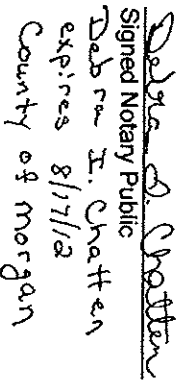 Debra I. Chatten
Signed Notary Public
Debra I. Chatten
expires 8/17/12
County of Morgan